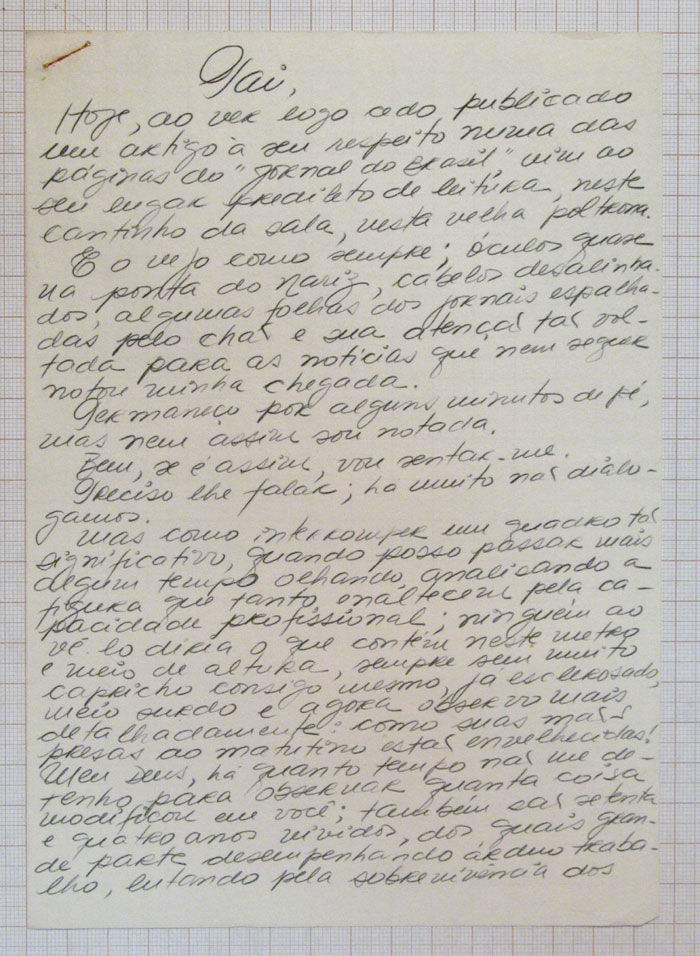 Pai,
Hoje, ao ver logo cedo publicado
um artigo à seu respeito numa das
páginas do "Jornal do Brasil," vim ao
seu lugar predileto de leitura, neste
cantinho da sala, nesta velha poltrona.
E o vejo como sempre; óculos quase
na ponta do nariz, cabelos desalinha-
dos, algumas folhas dos jornais espalha-
das pelo chão e sua atenção tão vol-
tada para as notícias que nem sequer
notou minha chegada.
Permaneço por alguns minutos de pé,
mas nem assim sou notada.
Bem, se é assim, vou sentar-me.
Preciso lhe falar; há muito não dialo-
gamos.
Mas como interromper um quadro tão
significativo, quando posso passar mais
algum tempo olhando, analisando a
figura que tanto enaltecem pela ca-
pacidade profissional; ninguém ao
vê-lo diria o que contém neste metro
e meio de altura, sempre sem muito
capricho consigo mesmo, já esclerosado,
meio surdo e agora observo mais
detalhadamente: como suas mãos
presas ao matutino estão envelhecidas!
Meu Deus, há quanto tempo não me de-
tenho para observar quanta coisa
modificou em você; também são setenta
e quatro anos vividos, dos quais gran-
de parte desempenhando árduo traba-
lho, lutando pela sobrevivência dos